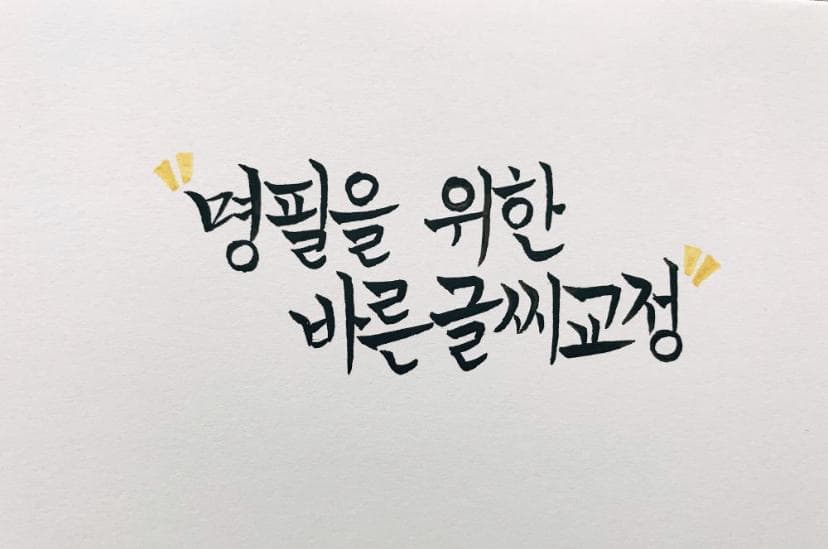 "명필을 위한
바른글씨교정"